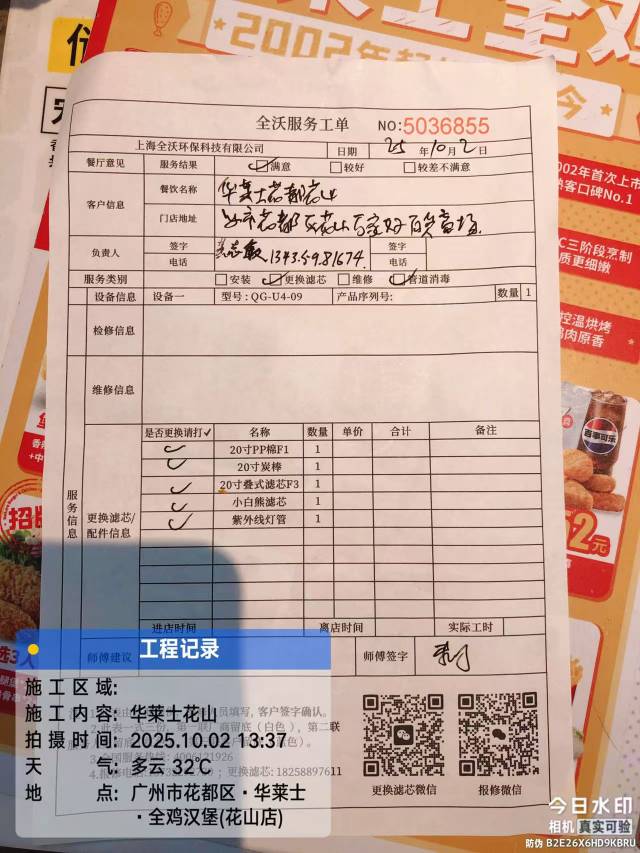 2002年起
全沃服务工单
NO:5036855
上海全沃环保科技有限公司 日期 25年10月2日
餐厅意见 服务结果 ☑满意 □较好 □较差不满意
客户信息 餐饮名称 华莱士花都花山
门店地址 花都区花山百家好百货商场
负责人 签字 签字
电话 电话
服务类别 □安装 ☑更换滤芯 □维修 ☑管道消毒
设备信息 设备一 型号: QG-U4-09 产品序列号: 数量 1
检修信息
维修信息
服务信息
更换滤芯/配件信息
是否更换请打✓ 名称 数量 单价 合计 备注
✓ 20寸PP棉F1 1
✓ 20寸炭棒 1
✓ 20寸叠式滤芯F3 1
✓ 小白熊滤芯 1
✓ 紫外线灯管 1
进店时间 离店时间 实际工时
师傅建议 师傅签字
员填写, 客户签字确认。
更换滤芯: 18258897611
更换滤芯微信 报修微信
工程记录
施工区域:
施工内容: 华莱士花山
拍摄时间: 2025.10.02 13:37
天气: 多云 32℃
地点: 广州市花都区·华莱士
·全鸡汉堡(花山店)
今日水印
相机 真实可验
防伪 B2E26X6HD9KBRU
2002年首次上市
客口碑No.1
三阶段烹制
质更细嫩
控温烘烤
鸡肉原香
百事可乐